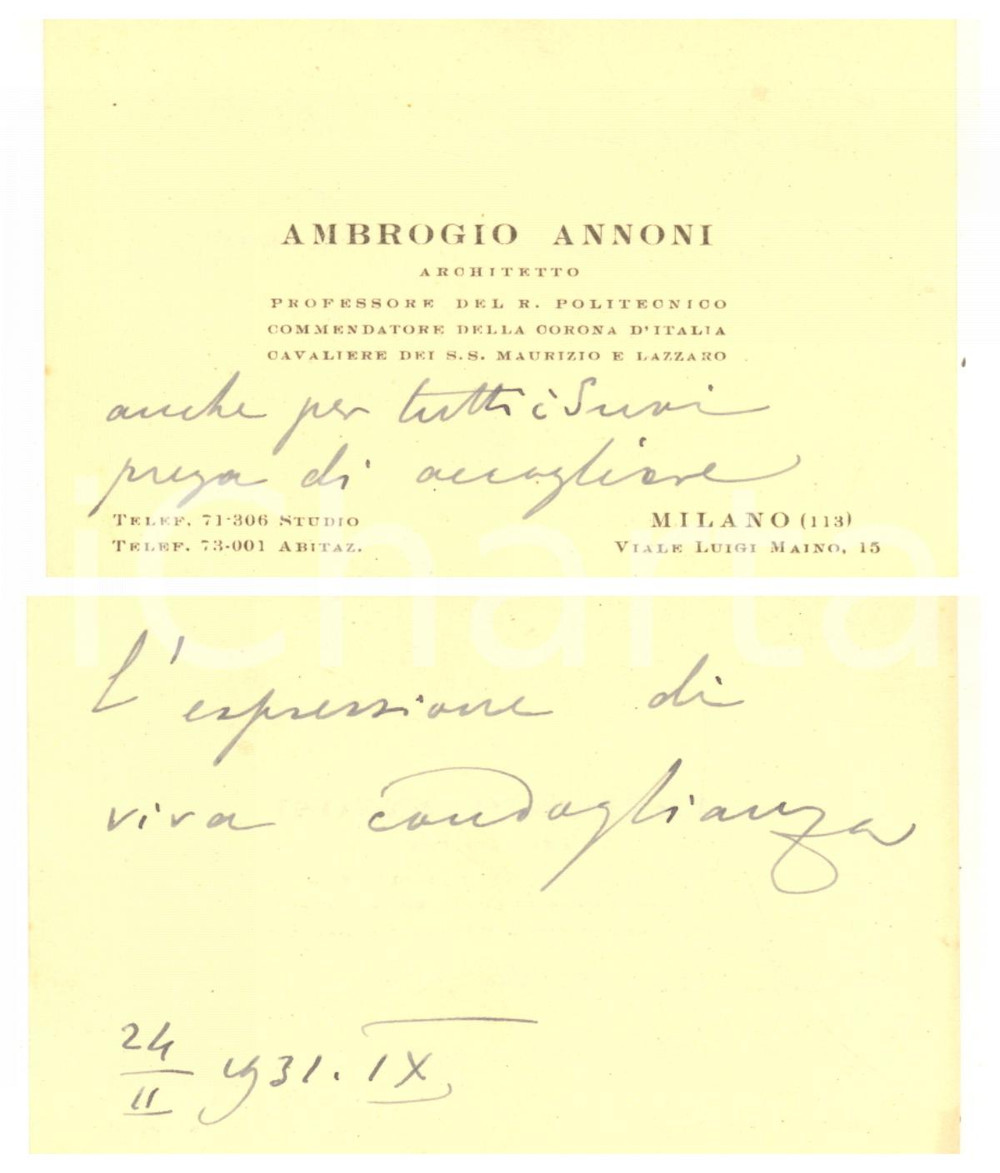 AMBROGIO ANNONI
ARCHITETTO
PROFESSORE DEL R. POLITECNICO
COMMENDATORE DELLA CORONA D'ITALIA
CAVALIERE DEI S.S. MAURIZIO E LAZZARO
anche per tutti i Suoi
prega di accogliere
TELEF. 71-306 STUDIO
TELEF. 73-001 ABITAZ.
MILANO (113)
VIALE LUIGI MAINO, 15
iCharta
l'espressione di
viva condoglianza
24/II 1931. IX